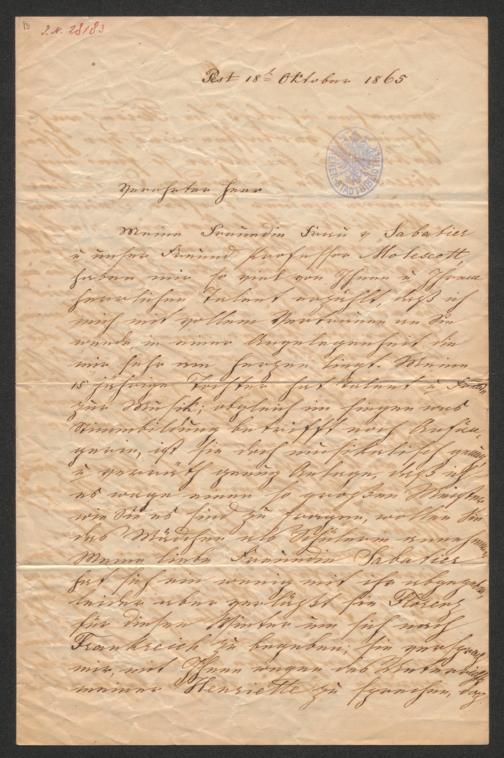 J.N. 28183
Pest 18t Oktober 1865
Verehrter Herr
Meine Freundin Frau v Sabatier
u unser Freund Professor Molescott,
haben mir so viel von Ihnen u Ihrem
herrlichen Talent erzählt, daß ich
mich mit vollem Vertrauen an Sie
wende in einer Angelegenheit die
mir sehr am Herzen liegt. Meine
15 jährige Tochter hat Talent u Freude
zur Musik; obgleich im Singen was
Stimmbildung betrifft noch Anfän
gerin, ist sie doch musikalisch genug
u verräth genug Anlage, daß ich
es wage einen so großen Meister
wie Sie es sind zu fragen, wollen Sie
das Mädchen als Schülerin annehmen
Meine liebe Freundin Sabatier
hat sich ein wenig mit ihr abgegeben
leider aber verläßt sie Florenz
für diesen Winter um sich nach
Frankreich zu begeben; sie versprach
mir, mit Ihnen wegen des Unterrichts
meiner Henriette zu sprechen, da